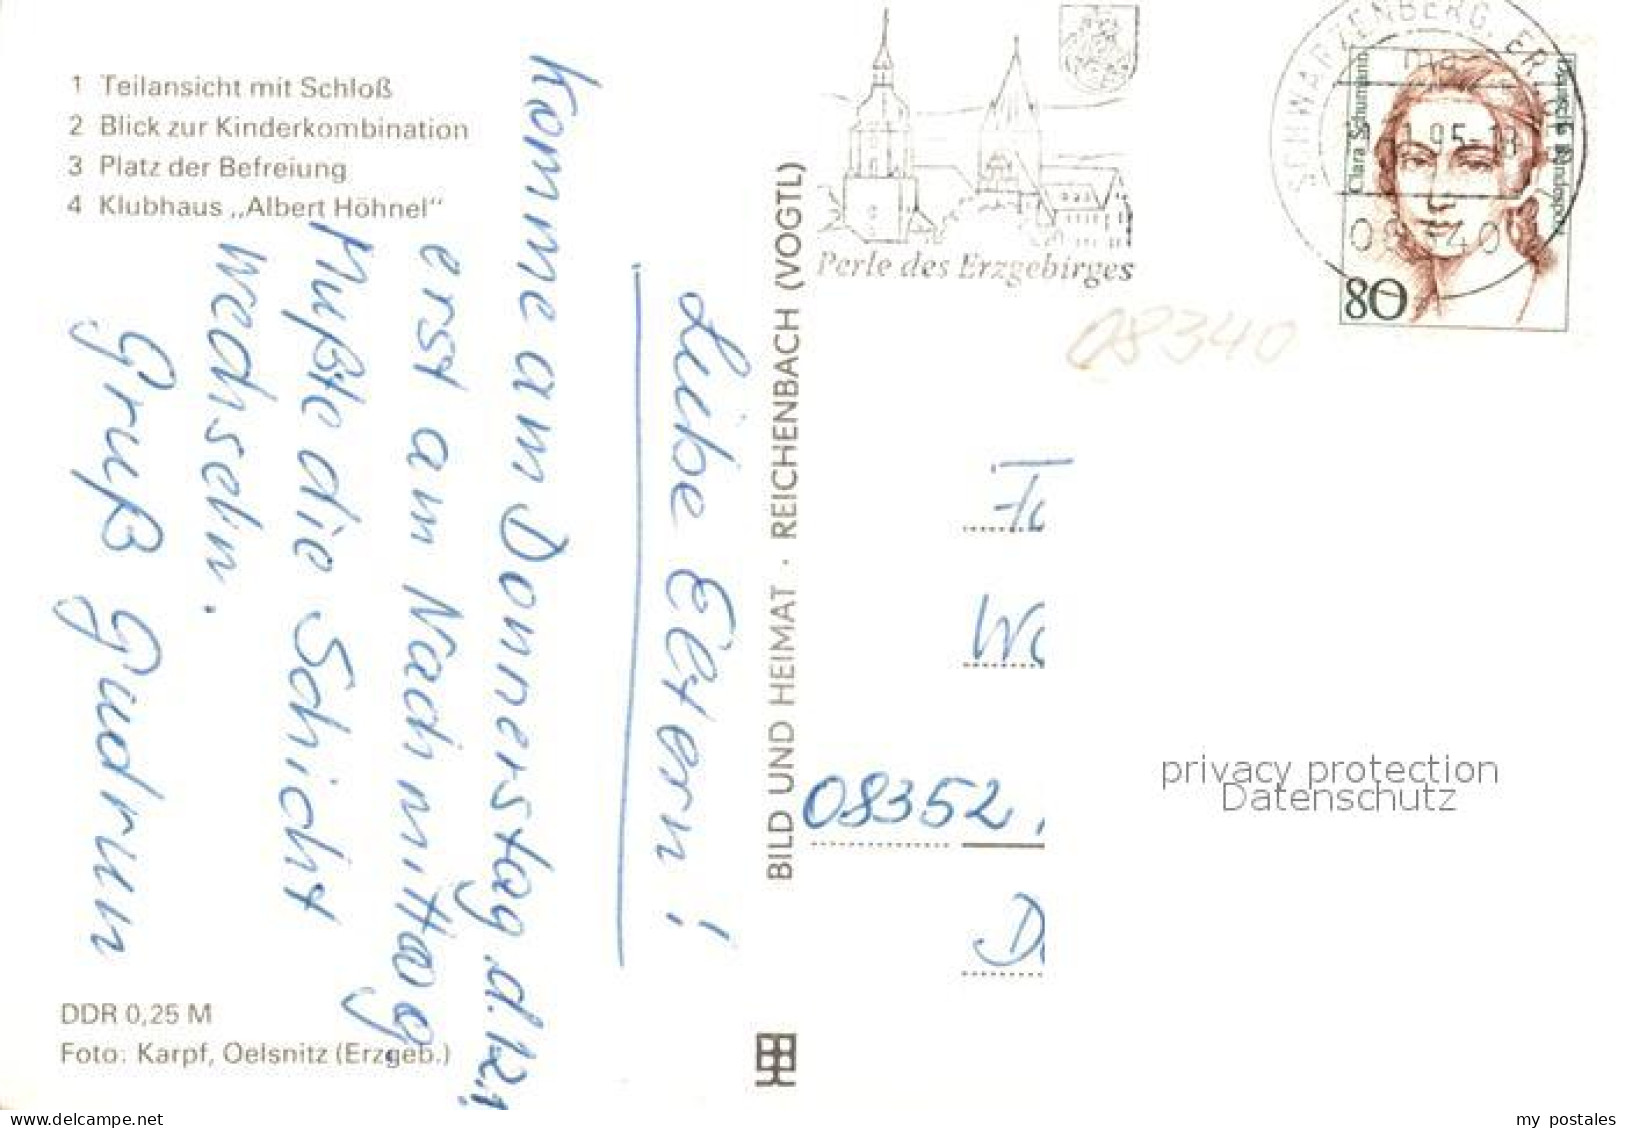 1 Teilansicht mit Schloß
2 Blick zur Kinderkombination
3 Platz der Befreiung
4 Klubhaus „Albert Höhnel“
Liebe Eltern!
Komme am Donnerstag d. 12.1
erst am Nachmittag
Mußte die Schicht
wechseln.
Gruß Gudrun
DDR 0,25 M
Foto: Karpf, Oelsnitz (Erzgeb.)
BILD UND HEIMAT · REICHENBACH (VOGTL)
Perle des Erzgebirges
SCHWARZENBERG, ERZGEB
Clara Schumann
Deutsche Bundespost
80
08340
08352
privacy protection
Datenschutz
www.delcampe.net
my_postales